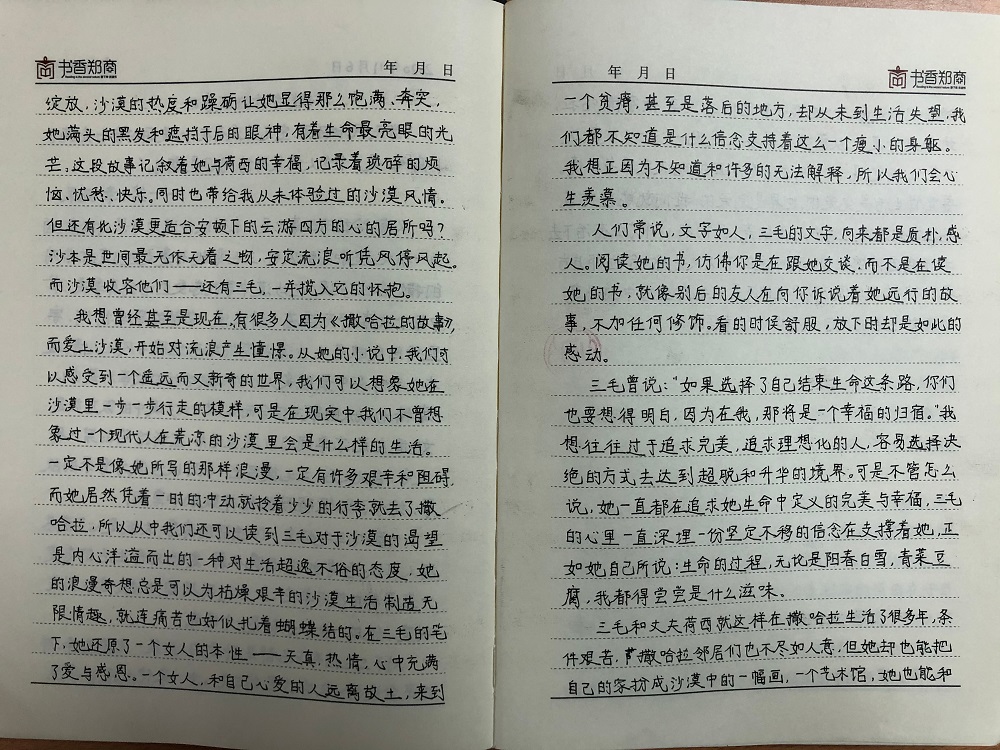 书香郑商
年 月 日
绽放，沙漠的热度和躁砺让她显得那么饱满、奔突，
她满头的黑发和遮挡于后的眼神，有着生命最亮眼的光
芒，这段故事记叙着她与荷西的幸福，记录着琐碎的烦
恼、忧愁、快乐。同时也带给我从未体验过的沙漠风情。
但还有比沙漠更适合安顿下的云游四方的心的居所吗？
沙本是世间最无依无着之物，安定流浪听凭风停风起。
而沙漠收容他们——还有三毛，一并揽入它的怀抱。
我想曾经甚至是现在，有很多人因为《撒哈拉的故事》，
而爱上沙漠，开始对流浪产生憧憬。从她的小说中，我们可
以感受到一个遥远而又新奇的世界，我们可以想象她在
沙漠里一步一步行走的模样，可是在现实中我们不曾想
象过一个现代人在荒凉的沙漠里会是什么样的生活。
一定不是像她所写的那样浪漫，一定有许多艰辛和阻碍，
而她居然凭着一时的冲动就拎着少少的行李就去了撒
哈拉，所以从中我们还可以读到三毛对于沙漠的渴望
是内心洋溢而出的一种对生活超逸不俗的态度，她
的浪漫奇想总是可以为枯燥艰辛的沙漠生活制造无
限情趣，就连痛苦也好似扎着蝴蝶结的。在三毛的笔
下，她还原了一个女人的本性——天真，热情，心中充满
了爱与感恩。一个女人，和自己心爱的人远离故土，来到
年 月 日
书香郑商
一个贫瘠，甚至是落后的地方，却从未到生活失望，我
们都不知道是什么信念支持着这么一个瘦小的身躯。
我想正因为不知道和许多的无法解释，所以我们会心
生羡慕。
人们常说，文字如人，三毛的文字，向来都是质朴，感
人。阅读她的书，仿佛你是在跟她交谈，而不是在读
她的书，就像别后的友人在向你诉说着她远行的故
事，不加任何修饰。看的时侯舒服，放下时却是如此的
感动。
三毛曾说：“如果选择了自己结束生命这条路，你们
也要想得明白，因为在我，那将是一个幸福的归宿。”我
想往往过于追求完美，追求理想化的人，容易选择决
绝的方式去达到超脱和升华的境界。可是不管怎么
说，她一直都在追求她生命中定义的完美与幸福，三毛
的心里一直深埋一份坚定不移的信念在支撑着她，正
如她自己所说：生命的过程，无论是阳春白雪，青菜豆
腐，我都得尝尝是什么滋味。
三毛和丈夫荷西就这样在撒哈拉生活了很多年，条
件艰苦，撒哈拉邻居们也不尽如人意，但她却也能把
自己的家扮成沙漠中的一幅画，一个艺术馆，她也能和